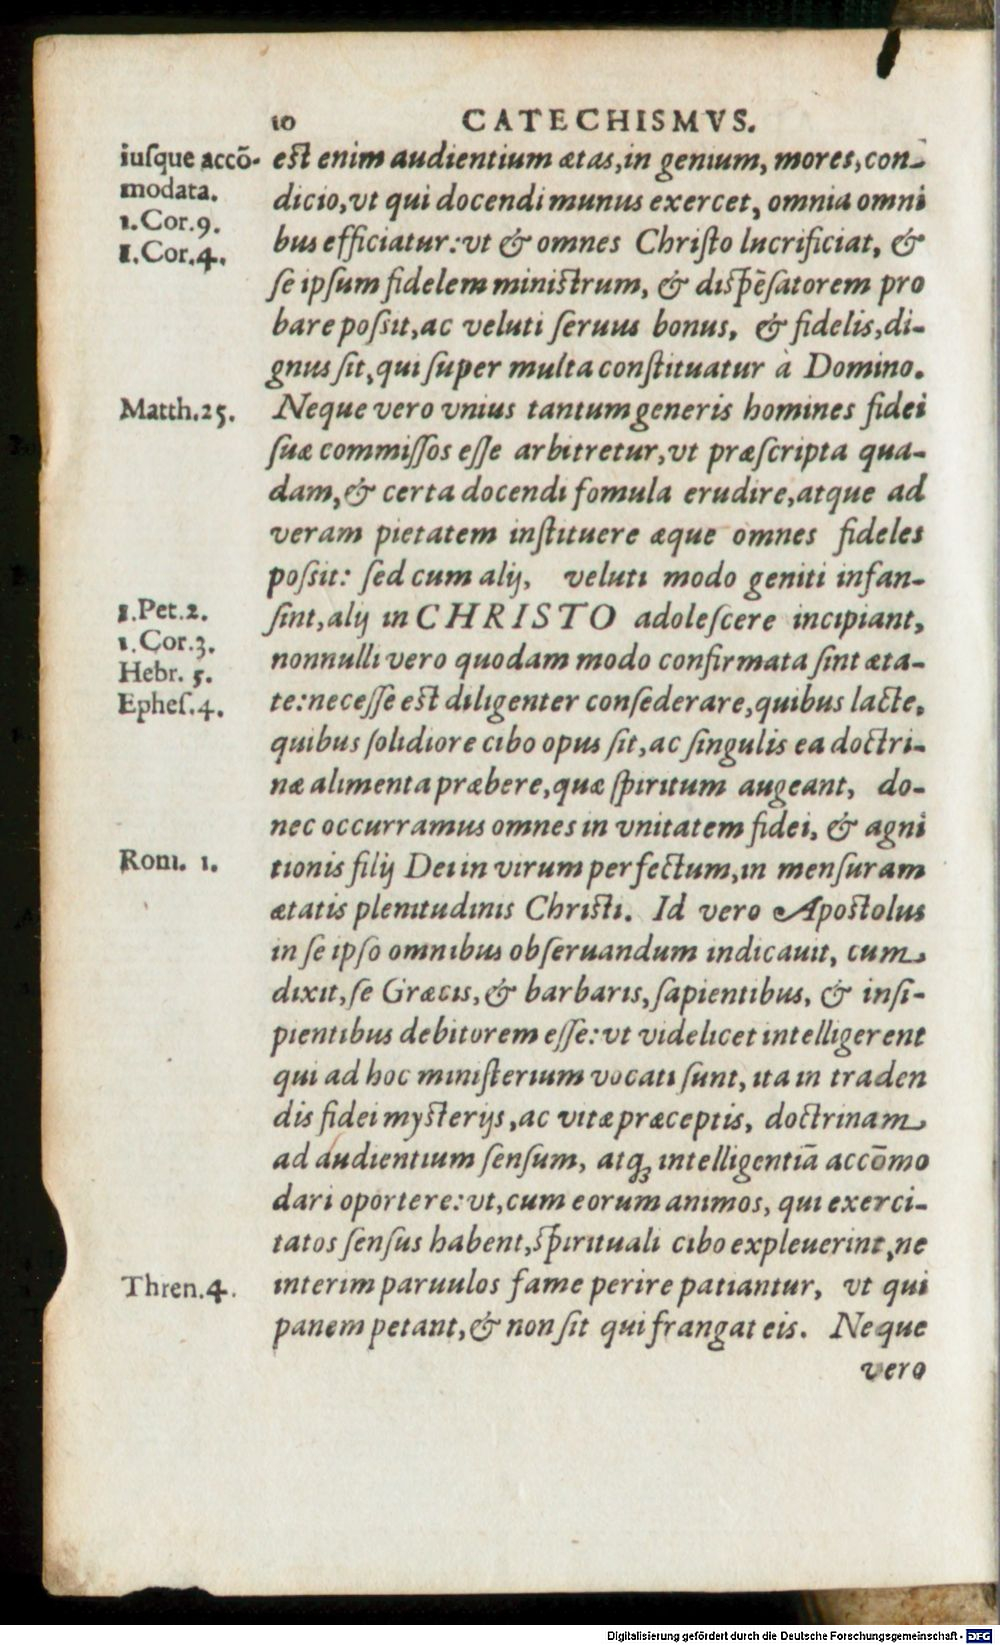 10 CATECHISMVS.
iuſque accō-
modata.
1.Cor.9.
1.Cor.4.
eſt enim audientium ætas,in genium, mores,con-
dicio,vt qui docendi munus exercet, omnia omni
bus efficiatur: vt & omnes Chriſto lucrificiat, &
ſe ipſum fidelem miniſtrum, & diſpēſatorem pro
bare poſsit,ac veluti ſeruus bonus, & fidelis,di-
gnus ſit,qui ſuper multa conſtituatur à Domino.
Matth.25.
Neque vero vnius tantum generis homines fidei
ſuæ commiſſos eſſe arbitretur,vt præſcripta qua-
dam,& certa docendi fomula erudire,atque ad
veram pietatem inſtituere æque omnes fideles
poſsit: ſed cum alij, veluti modo geniti infan-
1.Pet.2.
1.Cor.3.
Hebr. 5.
Epheſ.4.
ſint,alij in CHRISTO adoleſcere incipiant,
nonnulli vero quodam modo confirmata ſint æta-
te:neceſſe eſt diligenter conſederare,quibus lacte,
quibus ſolidiore cibo opus ſit,ac ſingulis ea doctri-
næ alimenta præbere,quæ ſpiritum augeant, do-
nec occurramus omnes in vnitatem fidei, & agni
Rom. 1.
tionis filij Dei in virum perfectum,in menſuram
ætatis plenitudinis Chriſti. Id vero Apoſtolus
in ſe ipſo omnibus obſeruandum indicauit, cum
dixit,ſe Græcis,& barbaris,ſapientibus, & inſi-
pientibus debitorem eſſe: vt videlicet intelligerent
qui ad hoc miniſterium vocati ſunt, ita in traden
dis fidei myſterijs,ac vitæ præceptis, doctrinam
ad audientium ſenſum, atq́ꝫ intelligentiā accōmo
dari oportere: vt,cum eorum animos, qui exerci-
tatos ſenſus habent,ſpirituali cibo expleuerint,ne
Thren.4.
interim paruulos fame perire patiantur, vt qui
panem petant,& non ſit qui frangat eis. Neque
vero
Digitalisierung gefördert durch die Deutsche Forschungsgemeinschaft - DFG